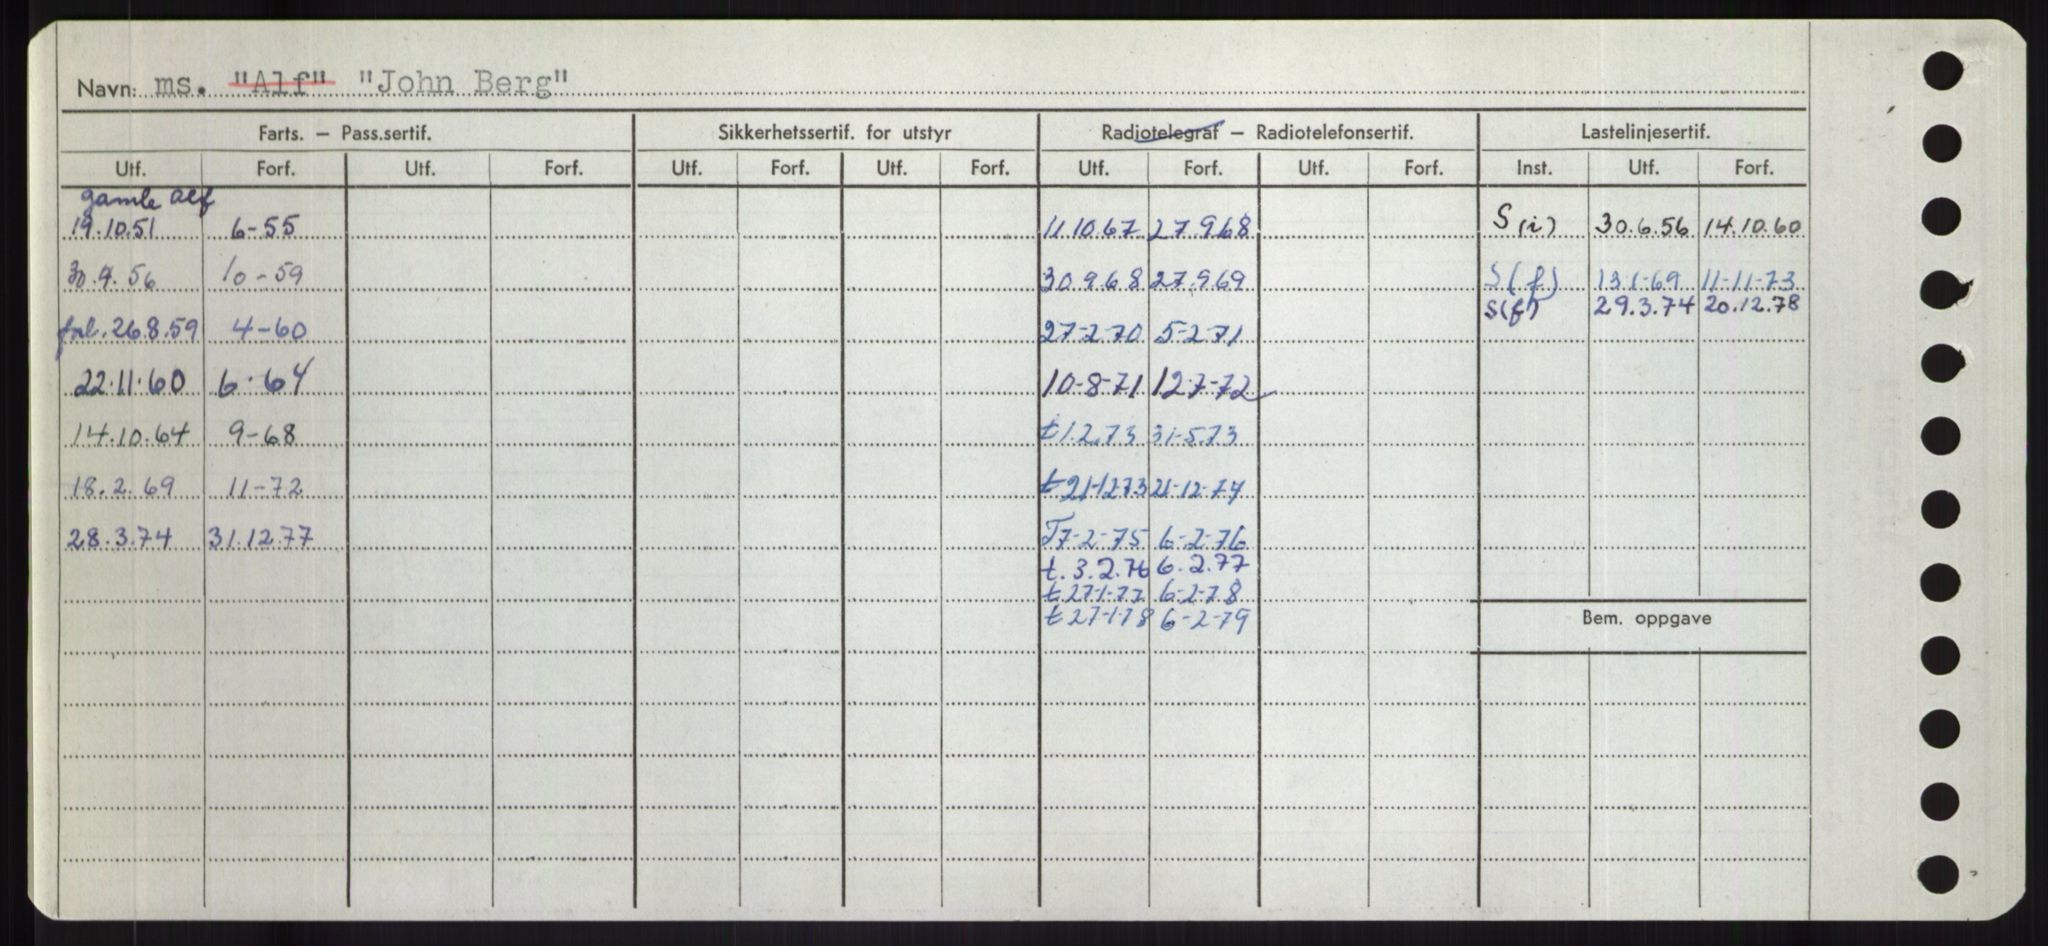 Navn: ms. "Alf" "John Berg"
Farts. – Pass.sertif. Sikkerhetssertif. for utstyr Radiotelegraf – Radiotelefonsertif. Lastelinjesertif.
Utf. Forf. Utf. Forf. Utf. Forf. Utf. Forf. Utf. Forf. Utf. Forf. Inst. Utf. Forf.
gamle Alf
19.10.51 6-55 11.10.67 27.9.68 S(i) 30.6.56 14.10.60
30.9.56 10-59 30.9.68 27.9.69 S(f) 13.1-69 11-11-73
S(f) 29.3.74 20.12.78
26.8.59 4-60 27-2-70 5-2-71
22.11.60 6.64 10-8-71 12-7-72
14.10.64 9-68 t1.2.73 31-5.73
18.2.69 11-72 t21-12-73 21-12-74
28.3.74 31.12.77 T7-2-75 6-2-76
t.3.2.76 6.2.77
t27-1-77 6-2-78
t27-1-78 6-2-79
Bem. oppgave